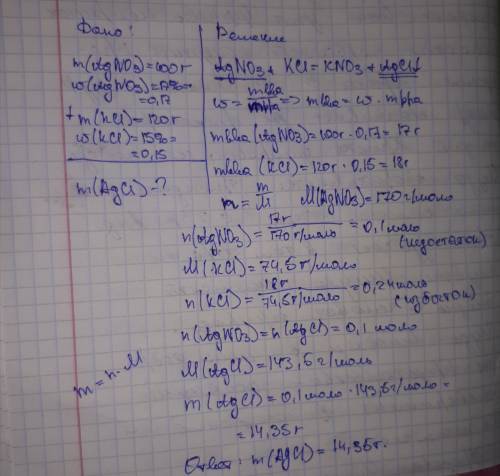 Дано:
m(AgNO3)=100г
w(AgNO3)=17%=
=0,17
+ m(KCl)=120г
w(KCl)=15%=
=0,15
m(AgCl)-?
Решение
AgNO3 + KCl = KNO3 + AgCl↓
w = mвва/mрра => mвва = w · mрра
mвва (AgNO3)=100г · 0,17 = 17г
mвва (KCl)=120г · 0,15 = 18г
n = m/M M(AgNO3)=170г/моль
n(AgNO3) = 17г/170г/моль = 0,1 моль
(недостаток)
M(KCl) = 74,5г/моль
n(KCl) = 18г/74,5г/моль = 0,24моль
(избыток)
n(AgNO3) = n(AgCl) = 0,1 моль
m = n · M
M(AgCl)=143,5г/моль
m(AgCl)=0,1моль · 143,5г/моль =
= 14,35г
Ответ: m(AgCl) = 14,35г.